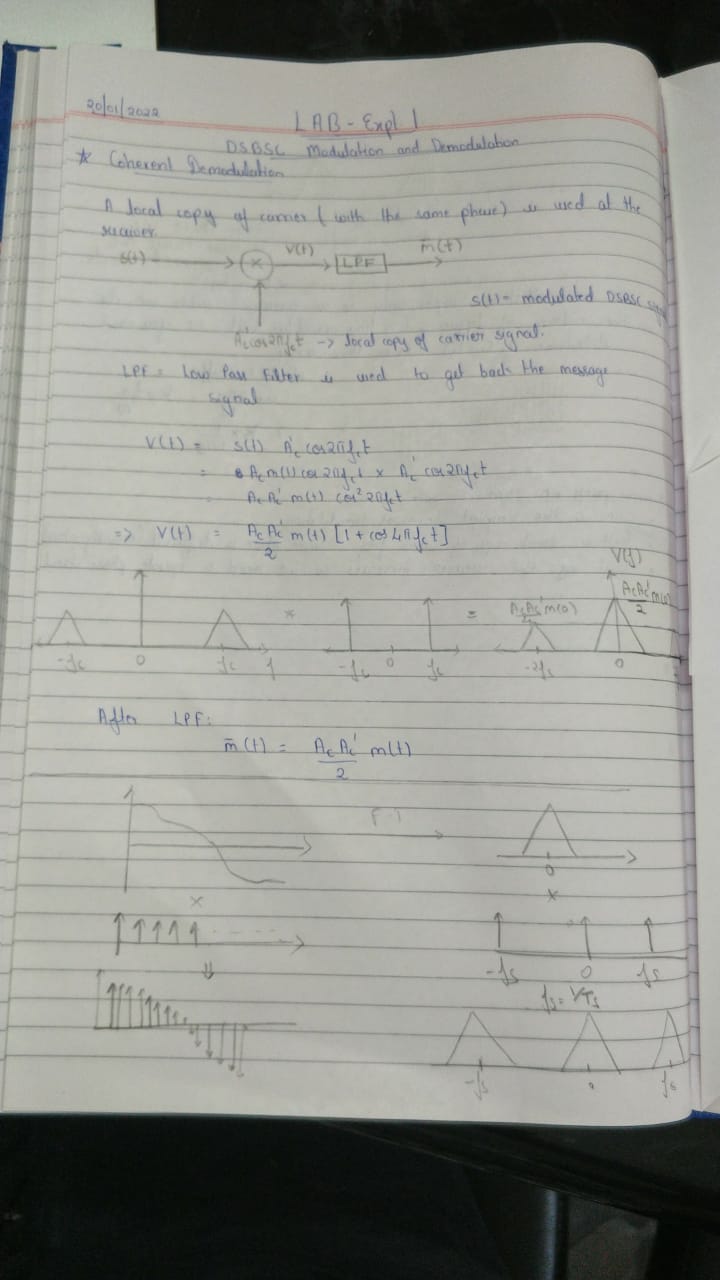 20/01/2022
LAB - Expt 1
DSBSC Modulation and Demodulation
* Coherent Demodulation
A local copy of carrier (with the same phase) is used at the
receiver
s(t) × v(t) LPF m̄(t)
s(t) = modulated DSBSC
Ac' cos2πfct -> local copy of carrier signal.
LPF = Low Pass Filter is used to get back the message
signal
V(t) = s(t) Ac' cos2πfct
= Ac m(t) cos2πfct × Ac' cos2πfct
Ac Ac' m(t) cos² 2πfct
=> V(t) = AcAc'/2 m(t) [1 + cos4πfct]
V(f)
-fc 0 fc f * -fc 0 fc = AcAc'm(0) -2fc AcAc'm(0)/2 0
After LPF:
m̄(t) = AcAc'/2 m(t)
F.T
0
× *
-fs 0 fs
⇓ fs = 1/Ts
-fs fs